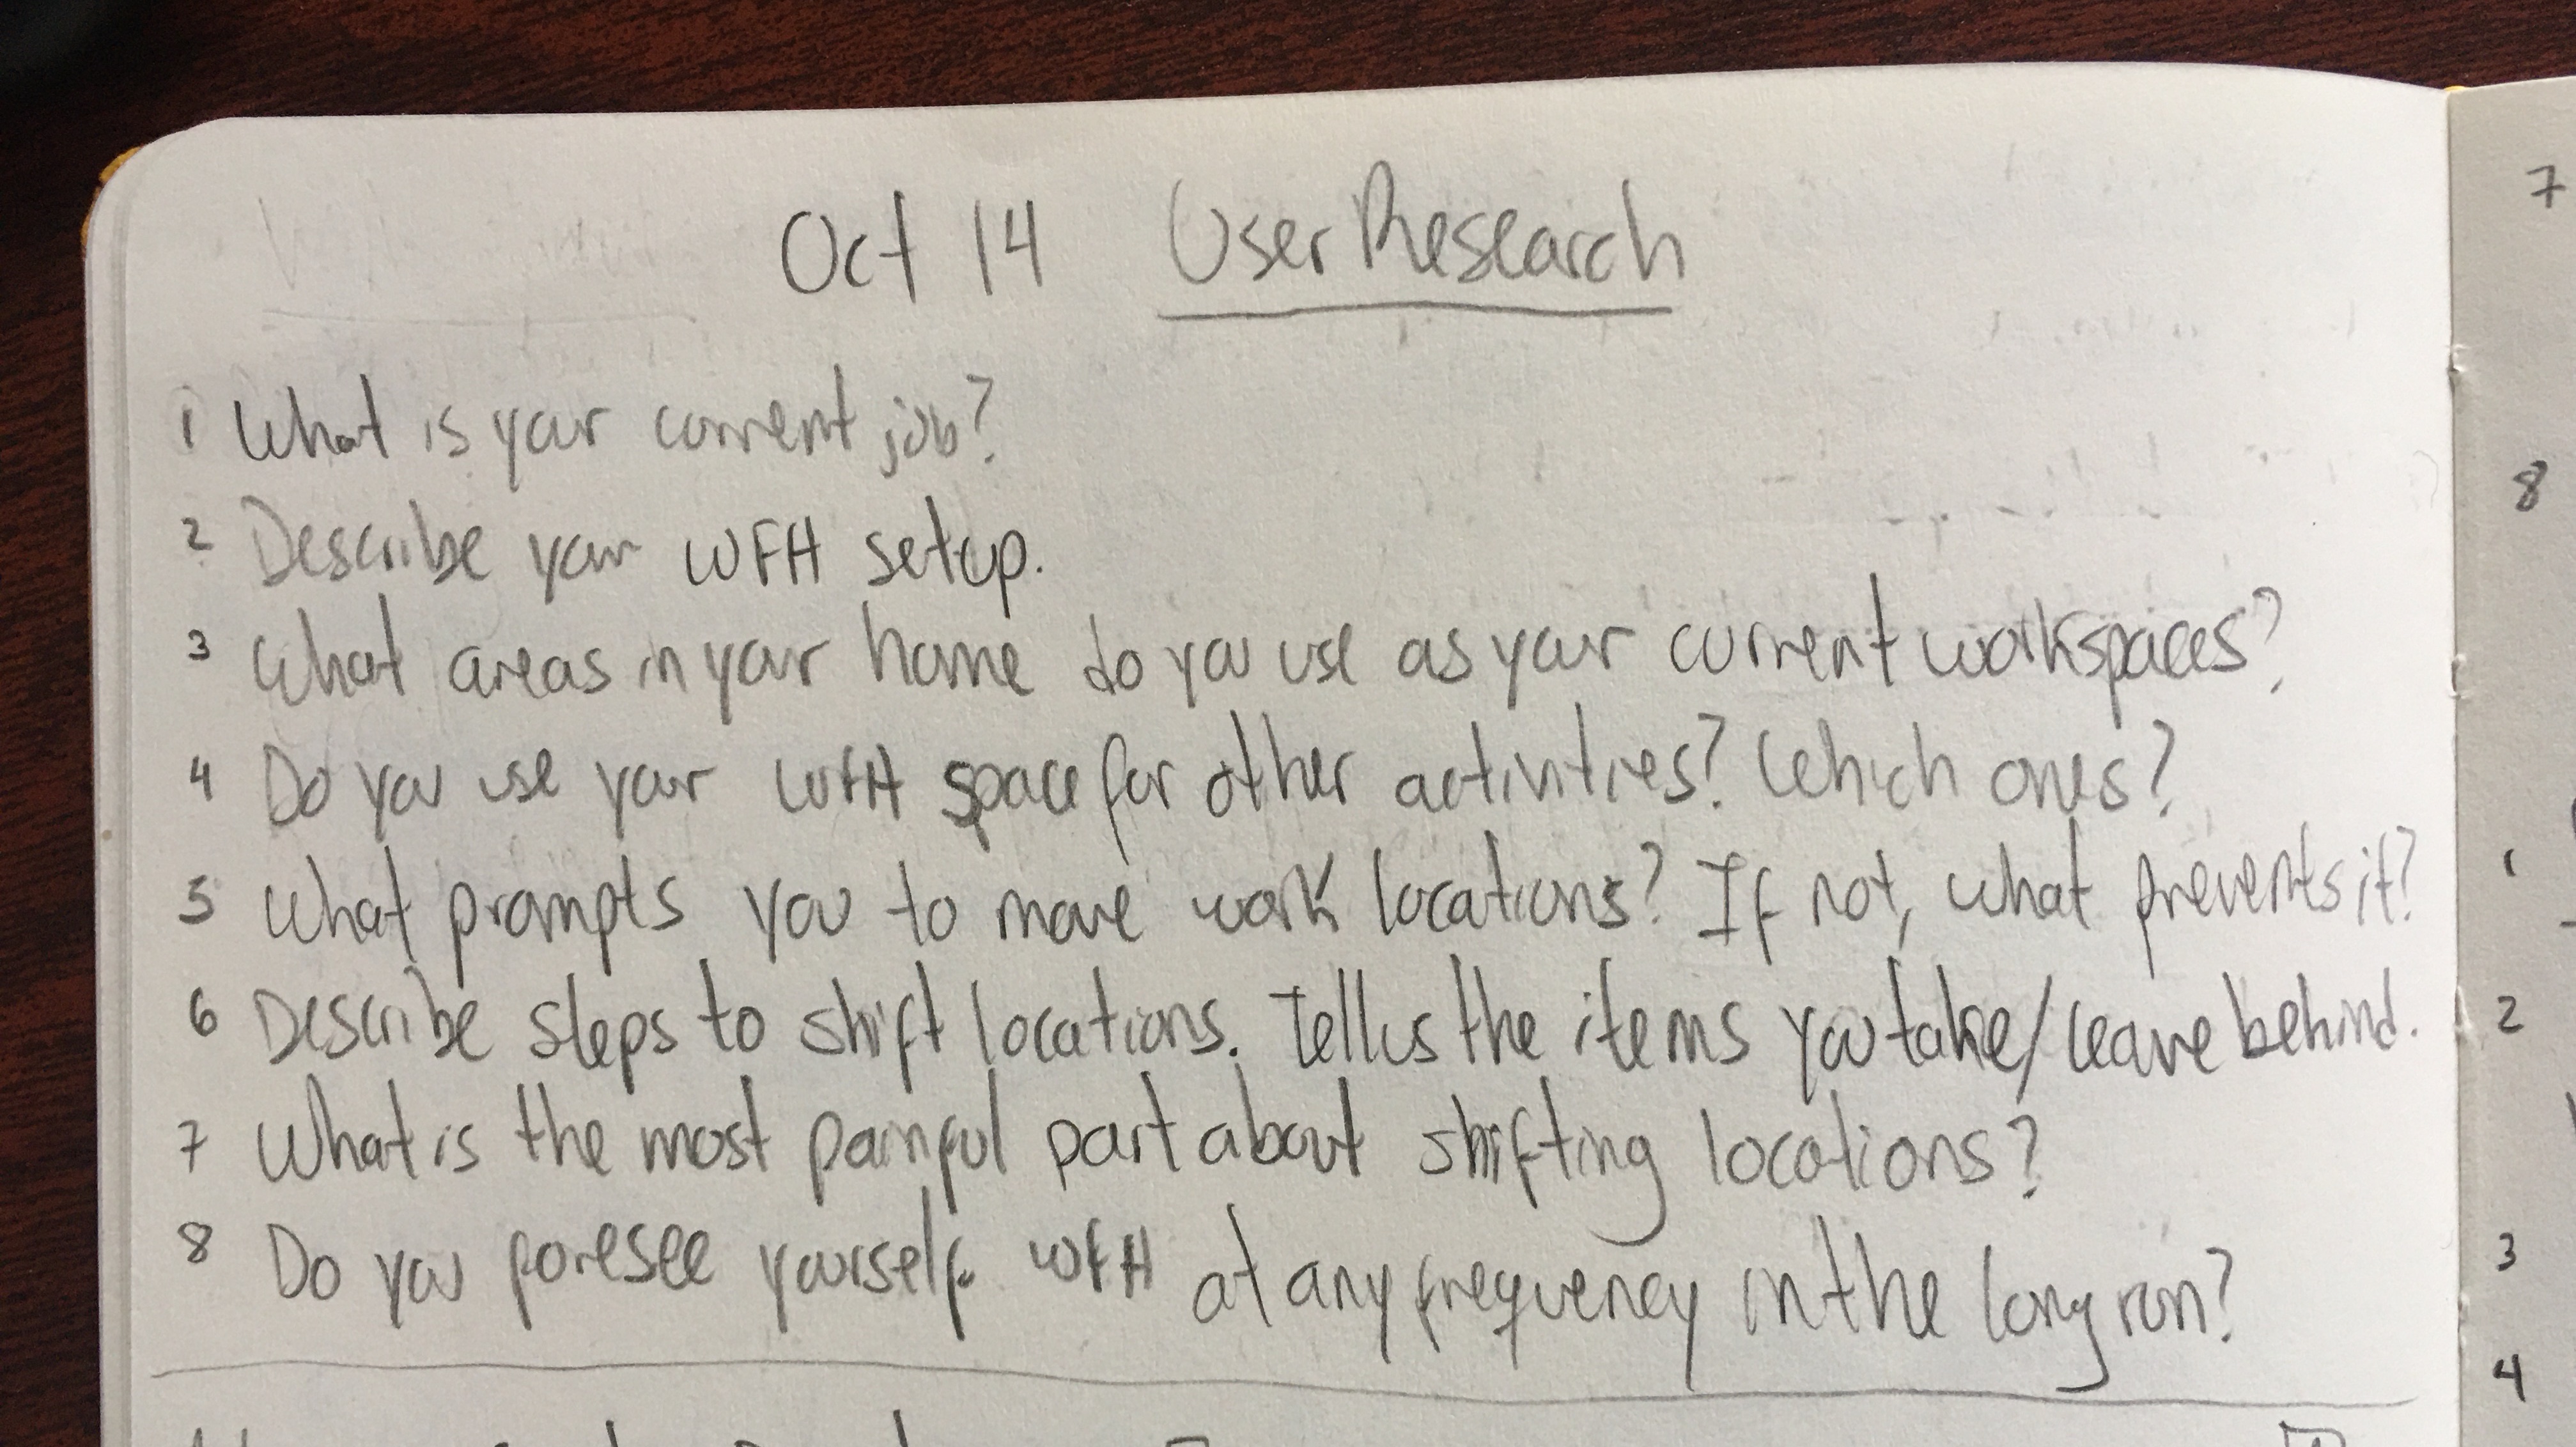 Oct 14 User Research
1 What is your current job?
2 Describe your WFH setup.
3 What areas in your home do you use as your current workspaces?
4 Do you use your WFH space for other activities? Which ones?
5 What prompts you to move work locations? If not, what prevents it?
6 Describe steps to shift locations. Tell us the items you take/leave behind.
7 What is the most painful part about shifting locations?
8 Do you foresee yourself WFH at any frequency in the long run?
7
8
1
2
3
4